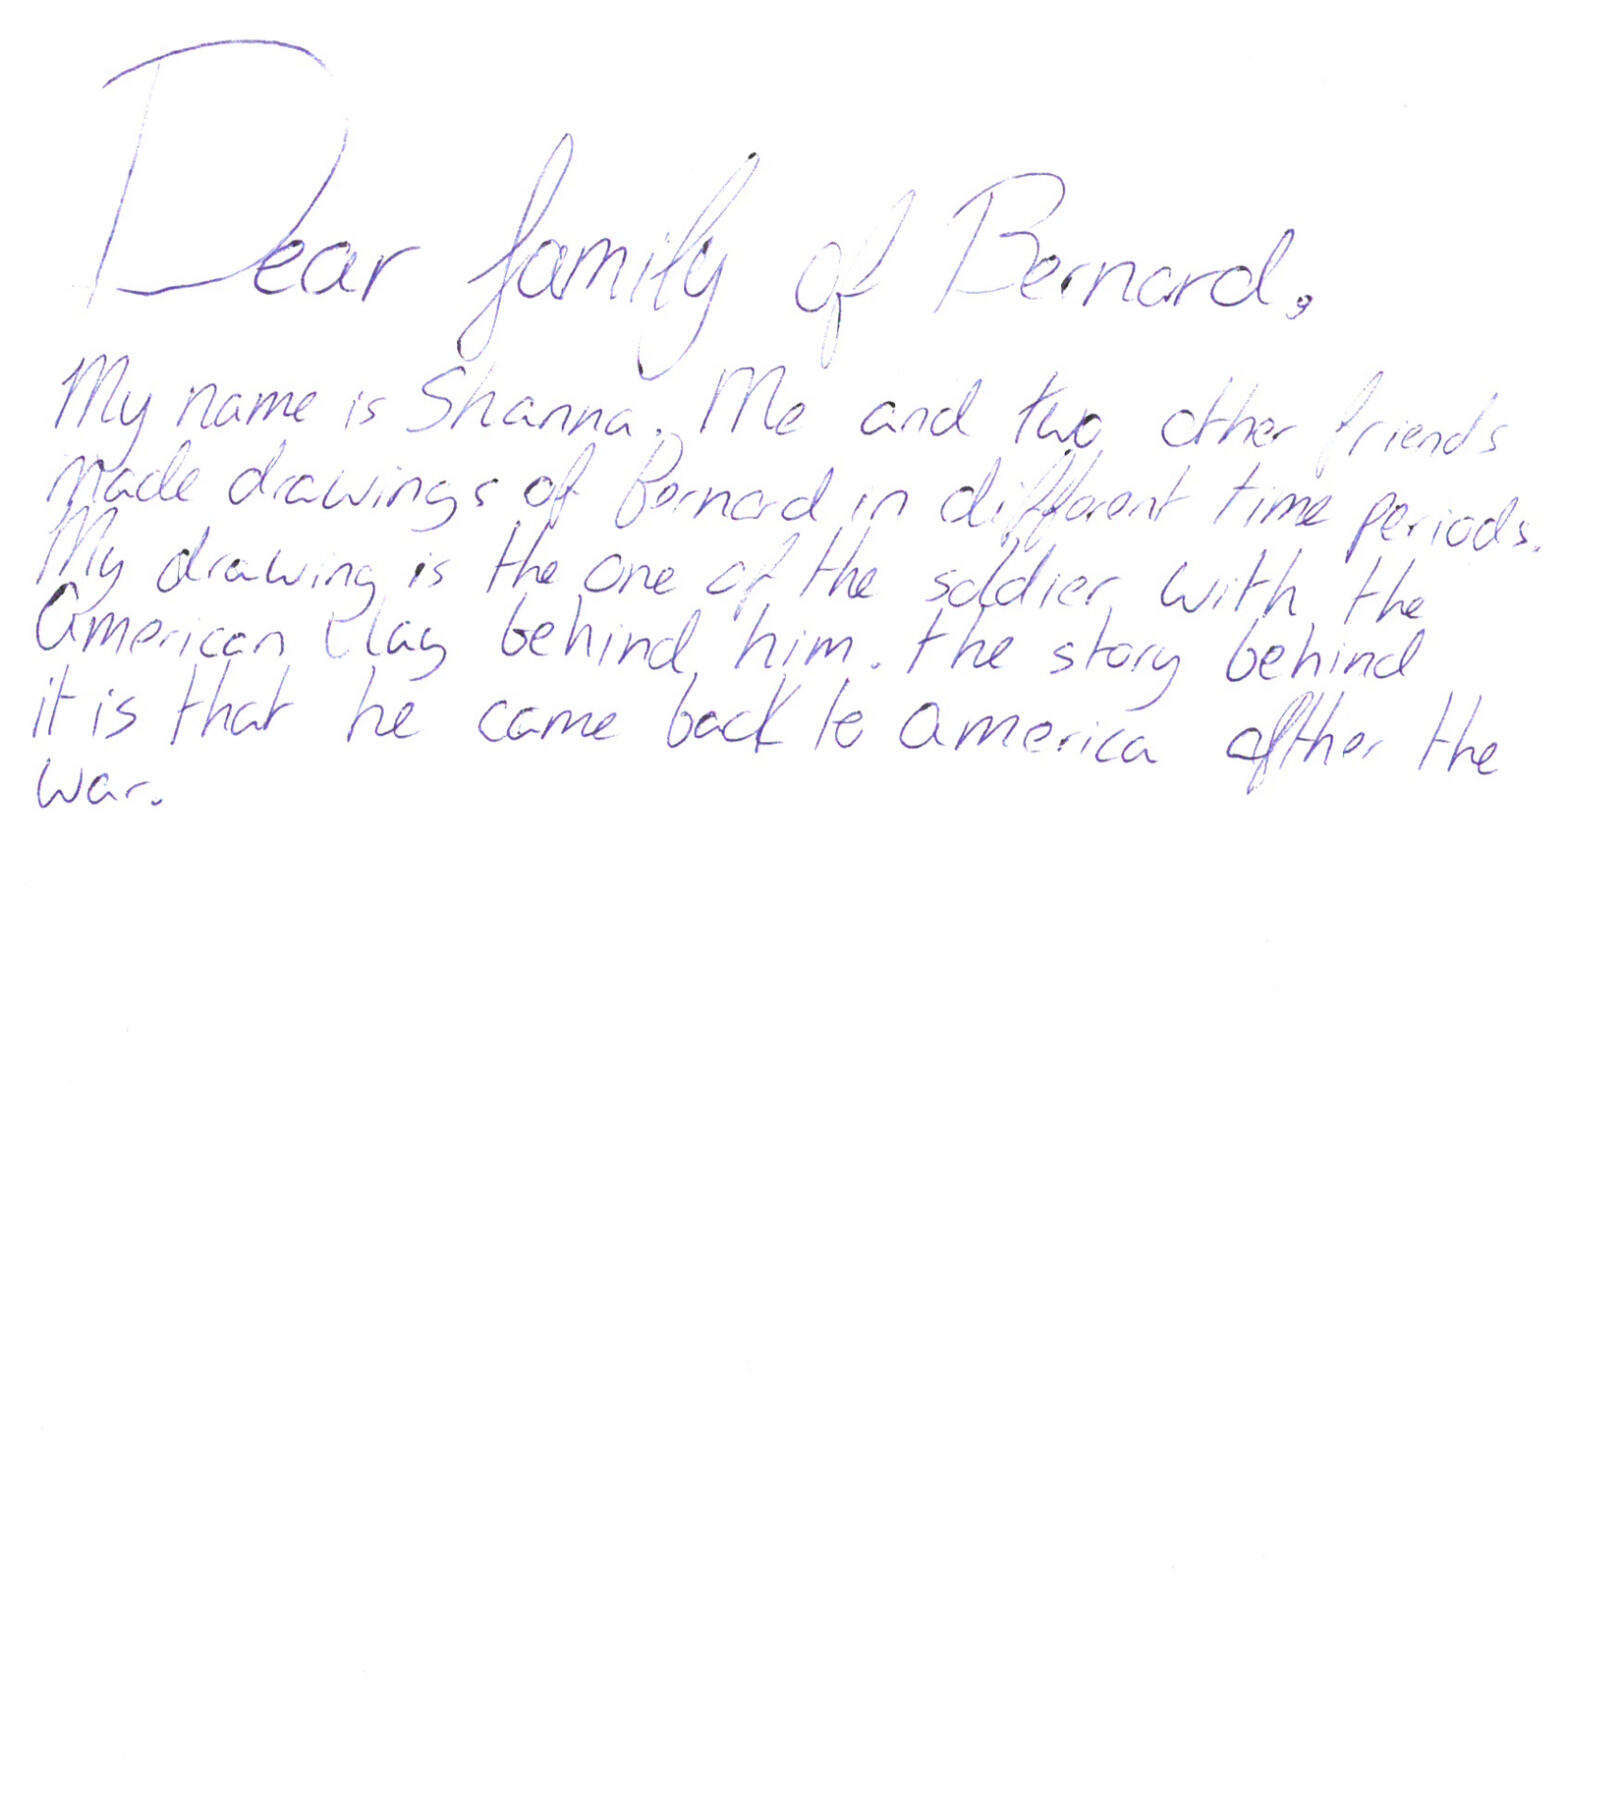 Dear family of Bernard,
My name is Shanna. Me and two other friends
made drawings of Bernard in different time periods.
My drawing is the one of the soldier with the
American flag behind him. the story behind
it is that he came back to America afther the
war.